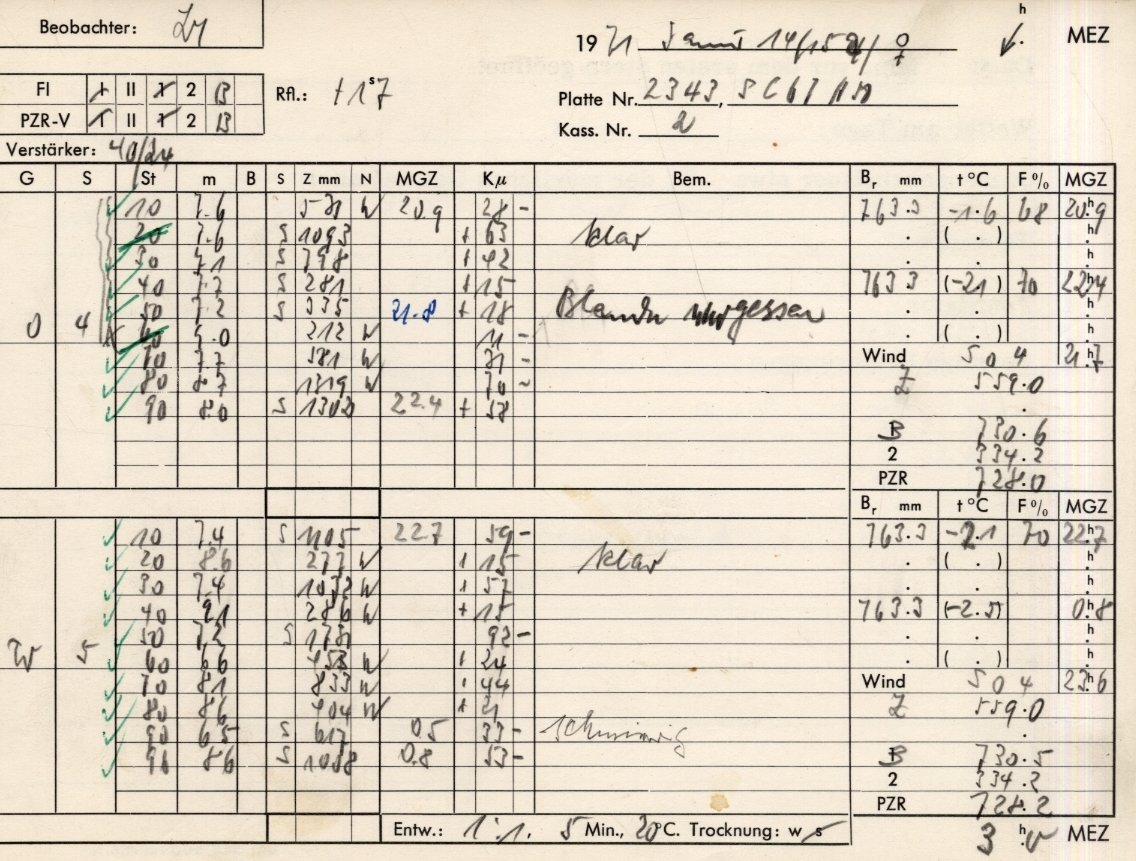 Beobachter:
1971 Januar 14/15 h MEZ
FI II 2 B
Rfl.: +1ˢ7
Platte Nr. 2343,
PZR-V II 2 B
Kass. Nr. 2
Verstärker: 40/24
G S St m B S Z mm N MGZ Kµ Bem. Br mm t °C F % MGZ
10 7.6 571 W 20.9 28 - 763.3 -1.6 68 20.ʰ9
20 7.6 S 1093 + 63 klar . ( . ) ʰ.
30 7.1 S 798 + 42 . . ʰ.
40 7.7 S 281 + 15 763.3 (-2.1) 70 22.ʰ4
50 7.2 S 335 21.8 + 18 Blende vergessen . . ʰ.
0 4 60 212 W 11 - . ( . ) ʰ.
70 7.7 581 W 31 - Wind 504 21.ʰ7
80 8.7 1319 W 70 - Z 559.0
90 8.0 S 1302 22.4 + 58 .
B 730.6
2 334.2
PZR 728.0
Br mm t °C F % MGZ
10 7.4 S 1105 22.7 59 - 763.3 -2.1 70 22.ʰ7
20 8.6 277 W + 15 klar . ( . ) ʰ.
30 7.4 1032 W + 57 . . ʰ.
40 9.1 286 W + 15 763.3 (-2.5) 0.ʰ8
50 7.2 S 1731 92 - . . ʰ.
W 5 60 6.6 453 W + 24 . ( . ) ʰ.
70 8.1 833 W + 44 Wind 504 23.ʰ6
80 8.6 404 W + 21 Z 559.0
90 6.5 S 617 0.5 33 - .
91 8.6 S 1038 0.8 53 - B 730.5
2 334.2
PZR 728.2
Entw.: 1:1. 5 Min., 20°C. Trocknung: w s 3 ʰ.0 MEZ